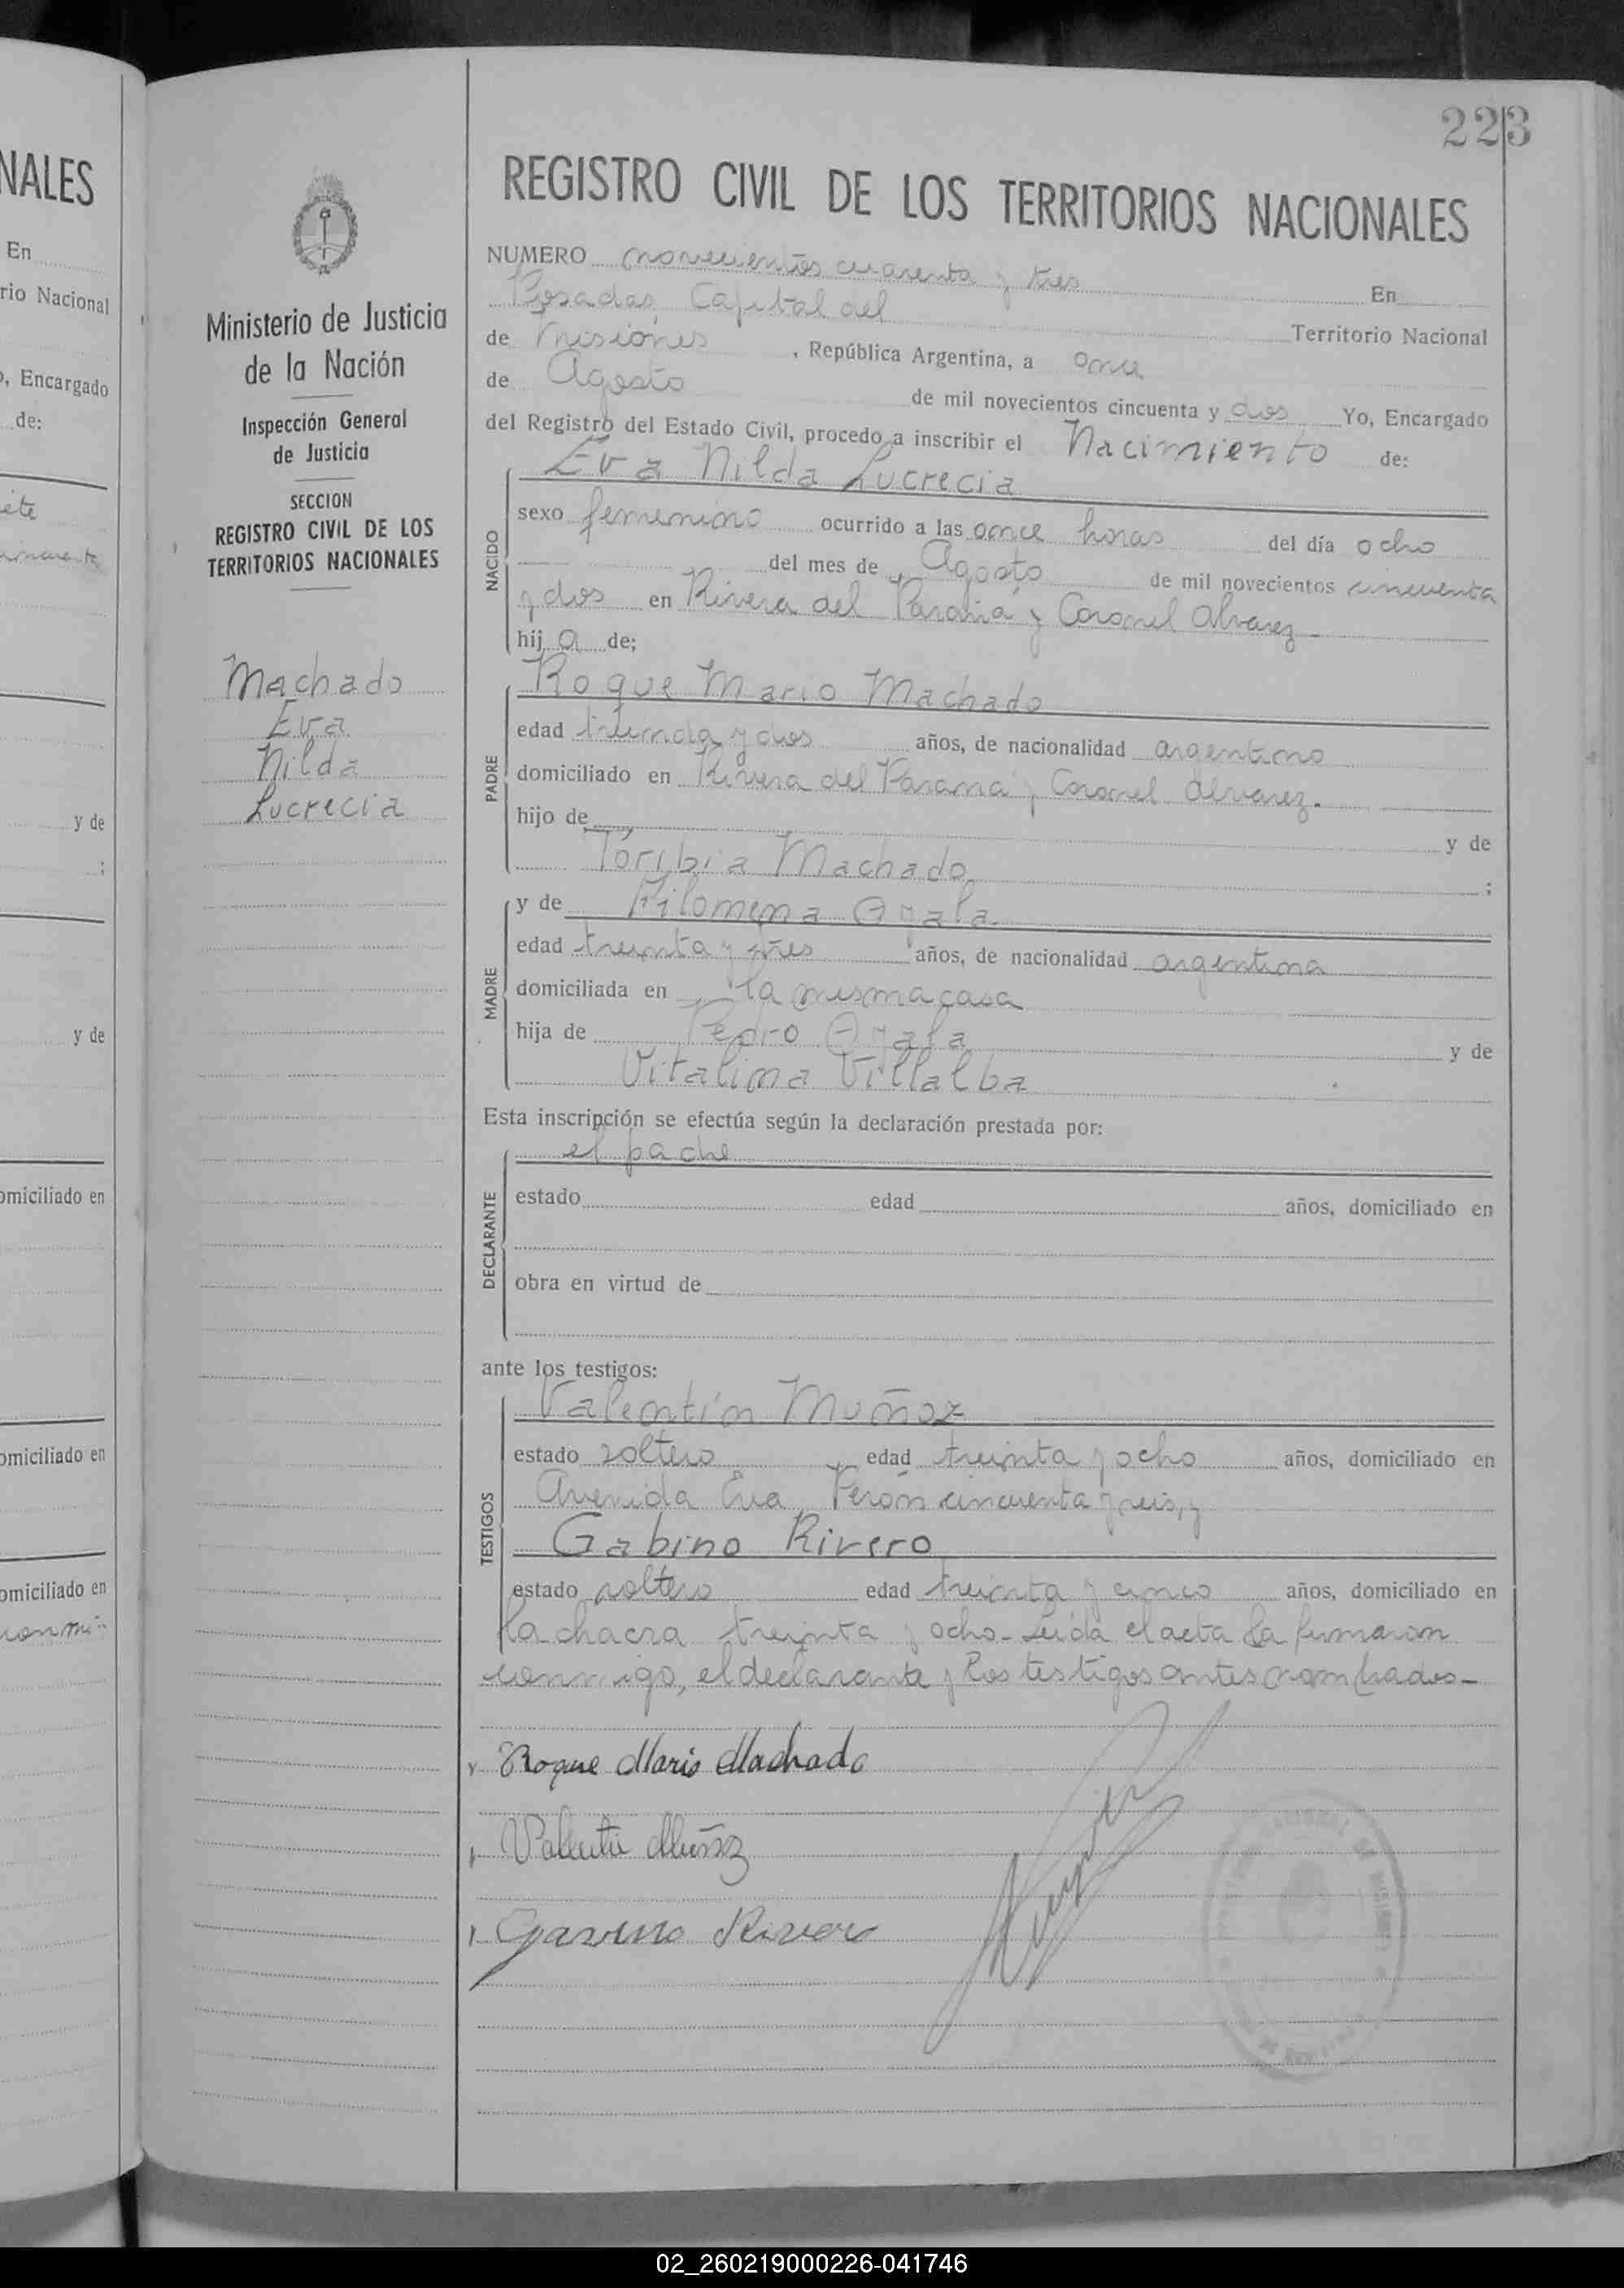 223
NALES
En
rio Nacional
o, Encargado
de:
y de
;
y de
omiciliado en
omiciliado en
omiciliado en
Ministerio de Justicia
de la Nación
Inspección General
de Justicia
SECCION
REGISTRO CIVIL DE LOS
TERRITORIOS NACIONALES
Machado
Eva
Nilda
Lucrecia
REGISTRO CIVIL DE LOS TERRITORIOS NACIONALES
NUMERO novecientos cuarenta y tres En
Posadas, Capital del Territorio Nacional
de Misiones, República Argentina, a once
de Agosto de mil novecientos cincuenta y dos Yo, Encargado
del Registro del Estado Civil, procedo a inscribir el Nacimiento de:
NACIDO
Eva Nilda Lucrecia
sexo femenino ocurrido a las once horas del día ocho
del mes de Agosto de mil novecientos cincuenta
y dos en Rivera del Paraná y Coronel Alvarez.
hija de;
PADRE
Roque Mario Machado
edad treinta y dos años, de nacionalidad argentino
domiciliado en Rivera del Paraná y Coronel Alvarez.
hijo de y de
Toribia Machado ;
MADRE
y de Filomena Ayala.
edad treinta y tres años, de nacionalidad argentina
domiciliada en la misma casa
hija de Pedro Ayala y de
Vitalina Villalba
Esta inscripción se efectúa según la declaración prestada por:
DECLARANTE
el padre
estado edad años, domiciliado en
obra en virtud de
ante los testigos:
TESTIGOS
Valentín Muñoz
estado soltero edad treinta y ocho años, domiciliado en
Avenida Eva Perón cincuenta y seis, y
Gabino Rivero
estado soltero edad treinta y cinco años, domiciliado en
la chacra treinta y ocho - Leida el acta la firmaron
conmigo, el declarante y los testigos antes nombrados -
Roque Mario Machado
Valentin Muñoz
Gavino Rivero
02_260219000226-041746